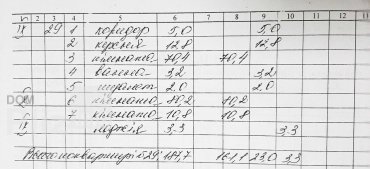 п 2 3 4 5 6 7 8 9 10 11
IX 29 1 коридор 5,0 5.0
2 кухня 12,8 12,8
3 кімната 70,4 70,4
4 ванна 3,2 3.2
5 туалет 2.0 2.0
6 кімната 10,2
7 кімната 10,8 10,8
лоджія 3.3 3,3
DOM
Всього по квартирі 29: 161,1 23.0 3,3